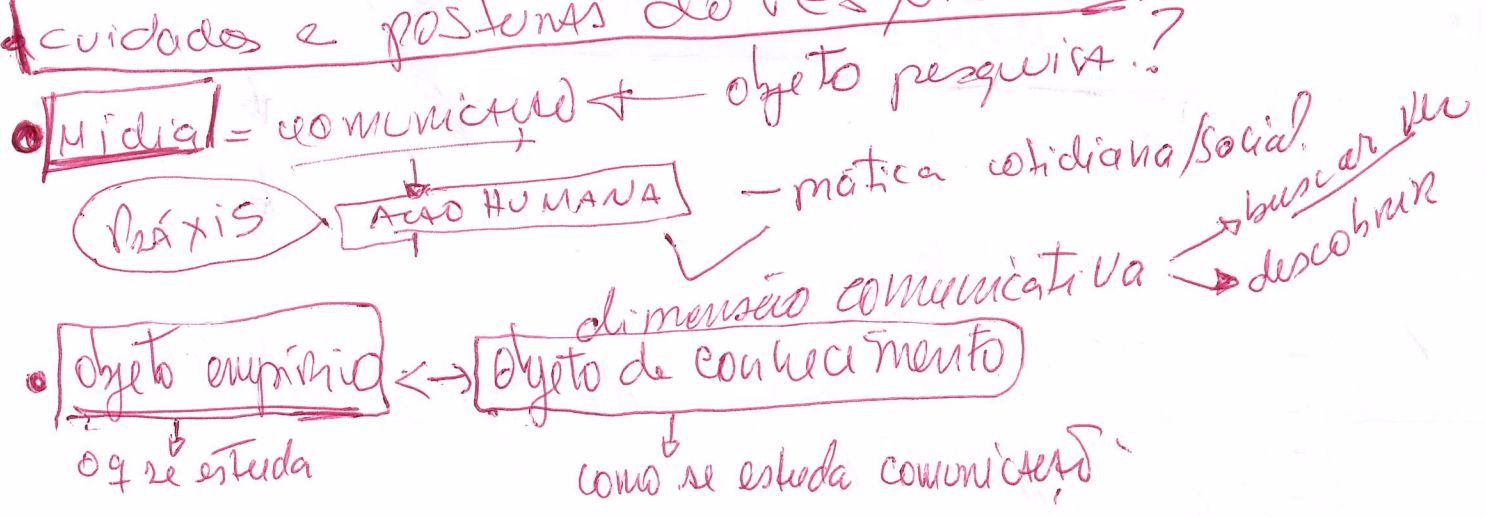 cuidados e posturas do
• Mídia = comunicação ← objeto pesquisa?
Práxis AÇÃO HUMANA - prática cotidiana/social
dimensão comunicativa → buscar ver
→ descobrir
• objeto empírico <-> objeto de conhecimento
o q se estuda
como se estuda comunicação